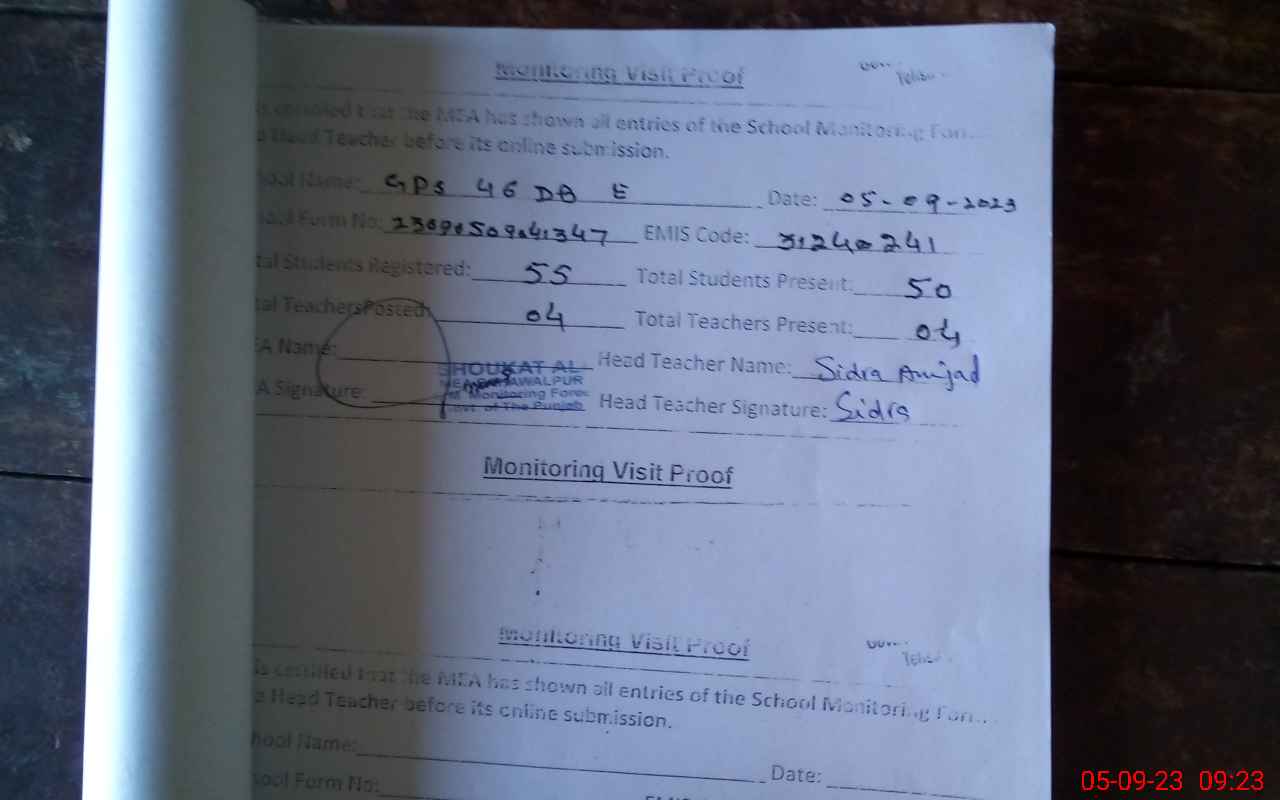 Monitoring Visit Proof
certified that the MEA has shown all entries of the School Monitoring
Head Teacher before its online submission.
Name: GPS 46 DB E Date: 05-09-2023
Form No: EMIS Code: 31240241
Students Registered: 55 Total Students Present: 50
Teachers Posted: 04 Total Teachers Present: 04
Name: SHOUKAT AL Head Teacher Name: Sidra Amjad
BAHAWALPUR
Monitoring Force
Signature: Head Teacher Signature: Sidra
of The Punjab
Monitoring Visit Proof
Monitoring Visit Proof
is certified that the MEA has shown all entries of the School Monitoring
Head Teacher before its online submission.
Name: Date:
Form No:
05-09-23 09:23